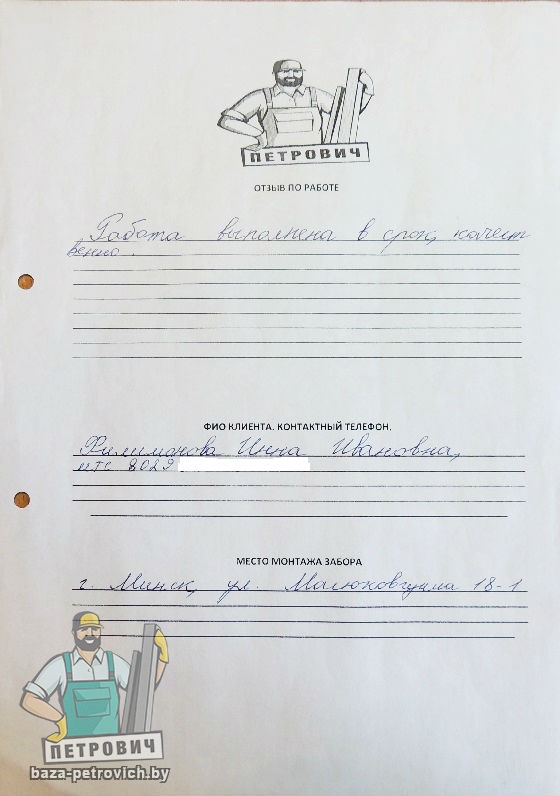 ПЕТРОВИЧ
ОТЗЫВ ПО РАБОТЕ
Работа выполнена в срок, качест
венно.
ФИО КЛИЕНТА. КОНТАКТНЫЙ ТЕЛЕФОН.
Филимонова Инна Ивановна,
мтс 8029
МЕСТО МОНТАЖА ЗАБОРА
г. Минск, ул. 18-1
ПЕТРОВИЧ
baza-petrovich.by